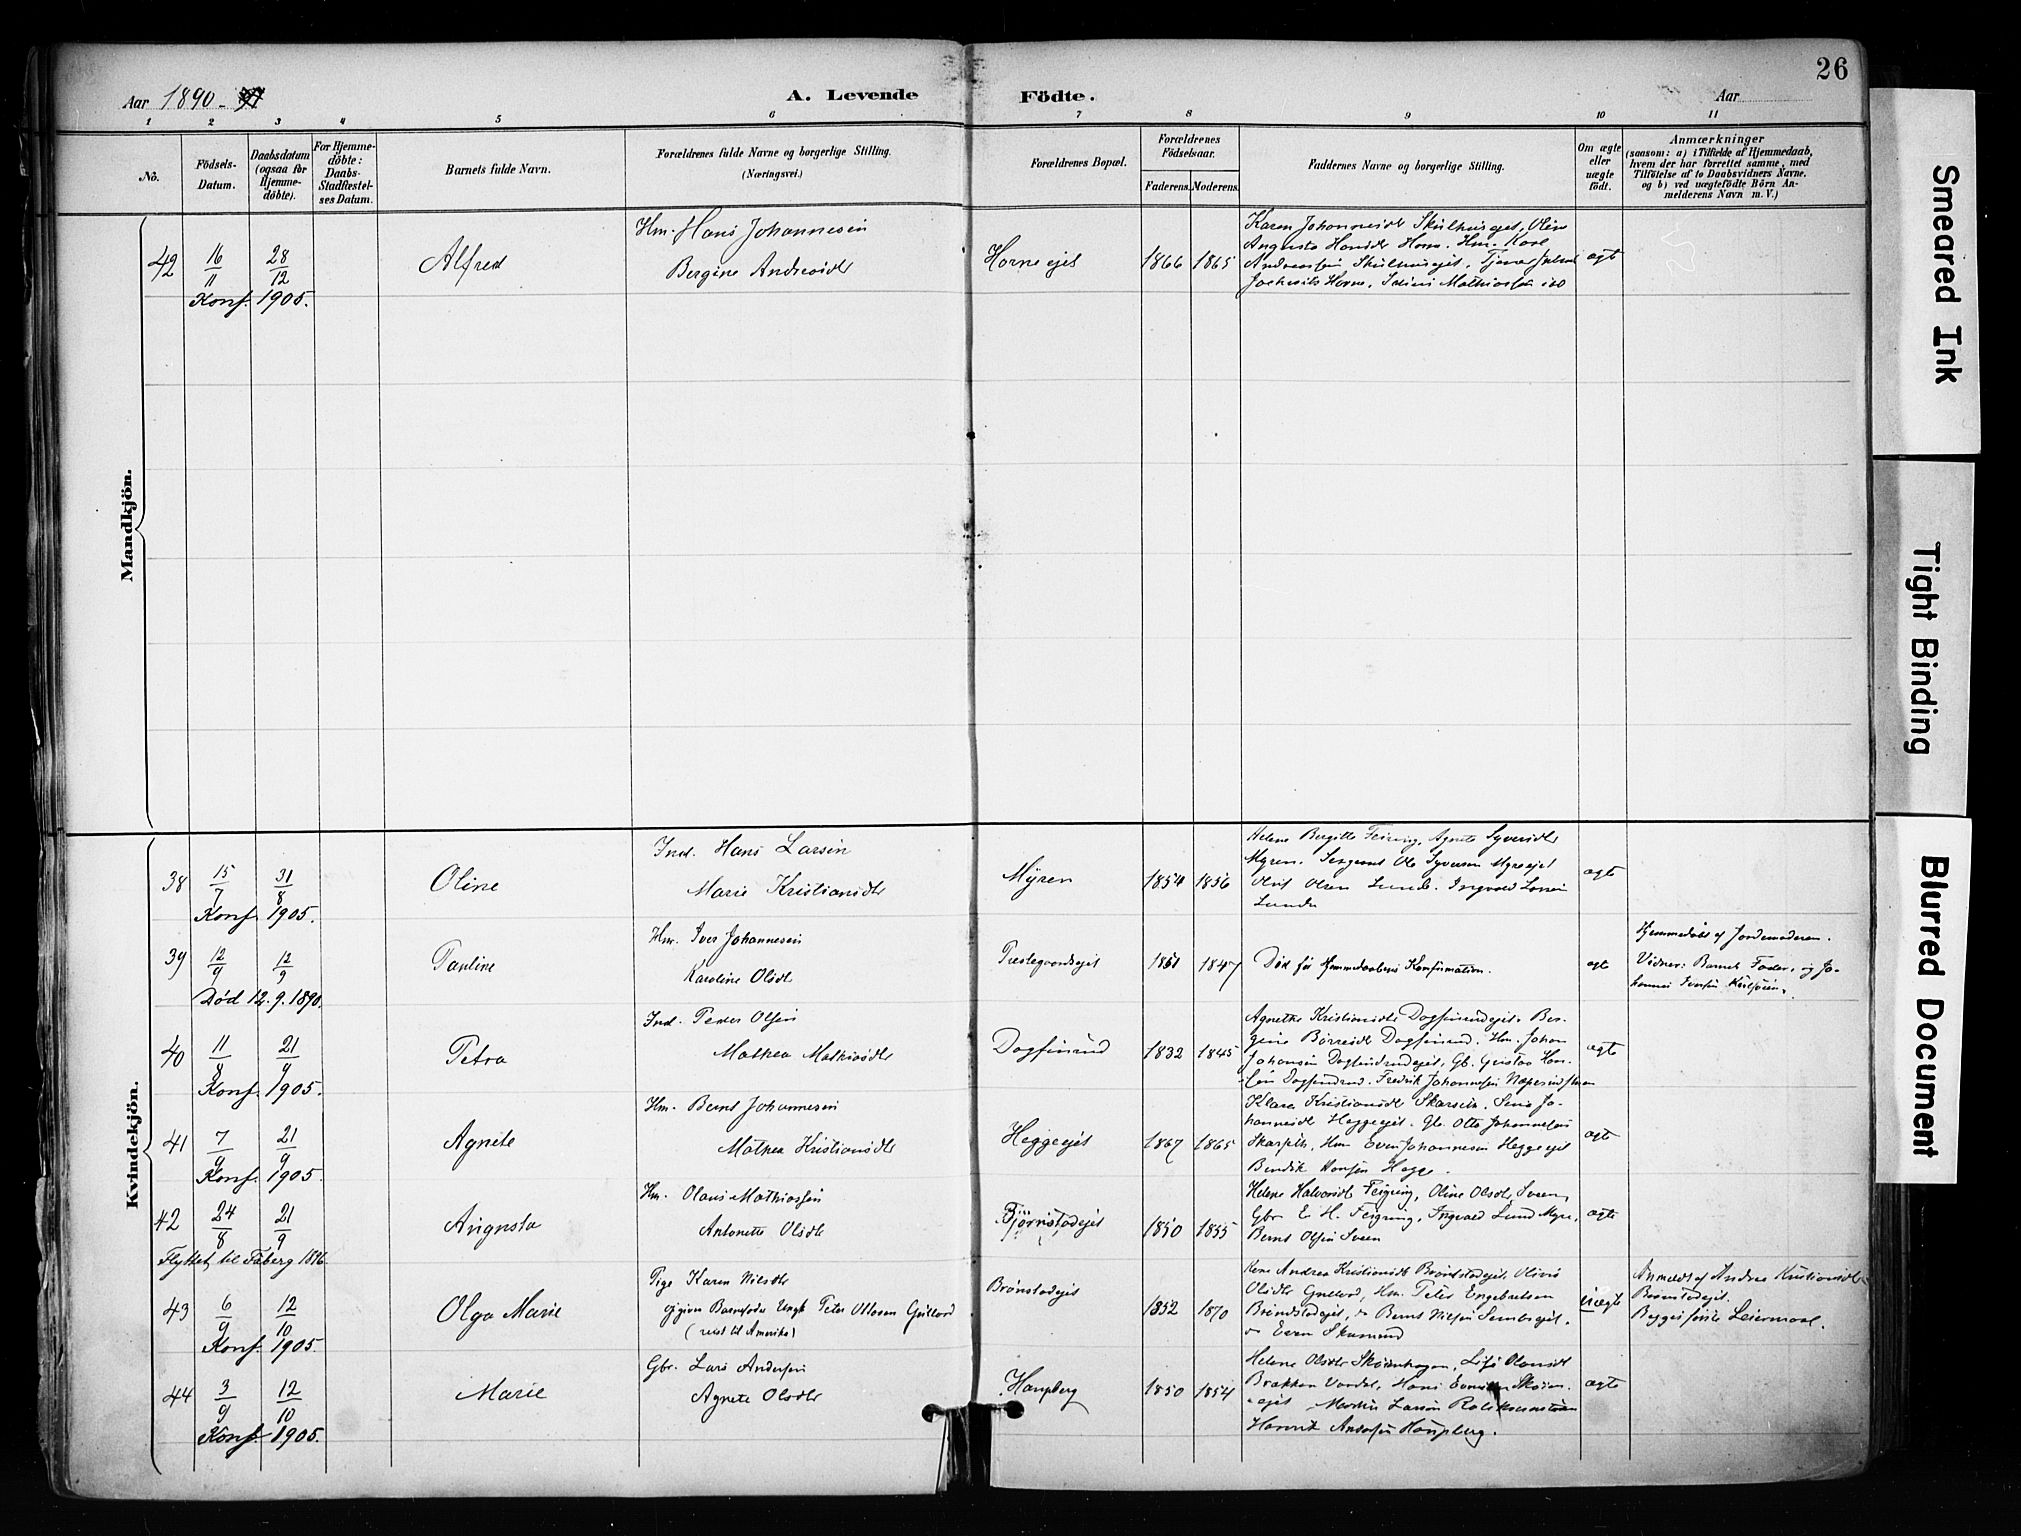 26
Aar 1890-
A. Levende Födte.
Aar
1 2 3 4 5 6 7 8 9 10 11
No.
Födsels-Datum.
Daabsdatum (ogsaa for Hjemme-döbte).
For Hjemme-döbte: Daabs-Stadfæstel-ses Datum.
Barnets fulde Navn.
Forældrenes fulde Navne og borgerlige Stilling.
(Næringsvei.)
Forældrenes Bopæl.
Forældrenes Födselsaar.
Faderens. Moderens.
Faddernes Navne og borgerlige Stilling.
Om ægte eller uægte födt.
Anmærkninger
(saasom: a) i Tilfælde af Hjemmedaab, hvem der har forrettet samme, med Tilföielse af to Daabsvidners Navne. og b) ved uægtefödte Börn An-melderens Navn m. V.)
Mandkjön.
42 16/11 28/12 Alfred
Hm. Hans Johannesen
Bergine Andreasdtr
Horneejet 1866 1865
Karen Johannesdt Skulhusejet, Oline
Augusta Hansdt Horne. Hm. Karl
Andreassen Skulhusejet.
ægt
Konf. 1905.
Kvindekjön.
38 15/7 31/8 Oline
Ind. Hans Larsen
Marie Kristiansdtr
Myren 1854 1856
Helene Bergitte Feiring, Agnete Syversdtr
Myren. Sergeant Ole Syversen Myreejet
Olaf Olsen Lunde. Ingvald Larsen
Lunde
ægte
Konf. 1905.
39 12/9 12/9 Pauline
Hm. Iver Johannesen
Karoline Olsdtr
Prestegaardsejet 1851 1847
Död før Hjemmedaabens Konfirmation.
ægte
Hjemmedöbt af Jordemoderen.
Vidner: Barnets Fader, og Jo-
hannes Iversen
Død 12.9.1890.
40 11/8 21/9 Petra
Ind. Peder Olsen
Mathea Mathiasdtr
Dagfinrud 1832 1845
Agnethe Kristiansdt Dagfinrudejet. Ber-
gine Børresdt Dagfinrud. Hm. Johan
Johansen Dagfindrudejet, Gb. Gustav Han-
sen Dagfindrud. Fredrik Johannesen
ægte
Konf. 1905.
41 7/9 21/9 Agnete
Hm. Bernt Johannesen
Mathea Kristiansdtr
Heggeejet 1867 1865
Klara Kristiansdt Skarseth. Sina Jo-
hannesdt Heggeejet. Gb. Otto Johannesen
Skarseth, Hm Even Johannesen Heggeejet
Bendik Hansen Hegge.
ægte
Konf. 1905.
42 24/8 21/9 Augusta
Hm. Olaus Mathiassen
Antonette Olsdtr
Bjørnstadejet 1850 1855
Helene Halvorsdt Feigring, Oline Olsdtr Sveen,
Gbr E. H. Feigring, Ingvald Lund Myre,
Bernt Olsen Sveen
ægte
Flyttet til Fåberg 1896.
43 6/9 12/10 Olga Marie
Pige Karen Nilsdtr
ejgiven Barnefader Ungk. Peter Ottesen Gullord
(reist til Amerika)
Brønstadejet 1852 1870
Kone Andrea Kristiansdt Brønstadejet. Olivia
Olsdtr Gullord, Hm. Peter Engebretsen
Brøndstadejet, do Bernt Nilsen Sembsejet.
do Even Skumrud
Uægte
Anmeldt af Andrea Kristiansdtr
Brønstadejet.
Begges første Leiermaal.
Konf. 1905.
44 3/9 12/10 Marie
Gbr. Lars Andersen
Agnete Olsdtr
Haugberg 1850 1854
Helene Olsdtr Skörenhagen, Lise Olavsdt
Brækken Vardal, Hans Evensen Skören-
ejet. Martin Larsen
Henrik Andersen Haugberg.
ægte
Konf. 1905.
Smeared Ink
Tight Binding
Blurred Document